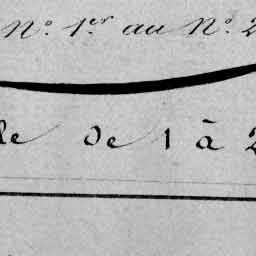 N.° 1.er au N.° 2
le de 1 à 2